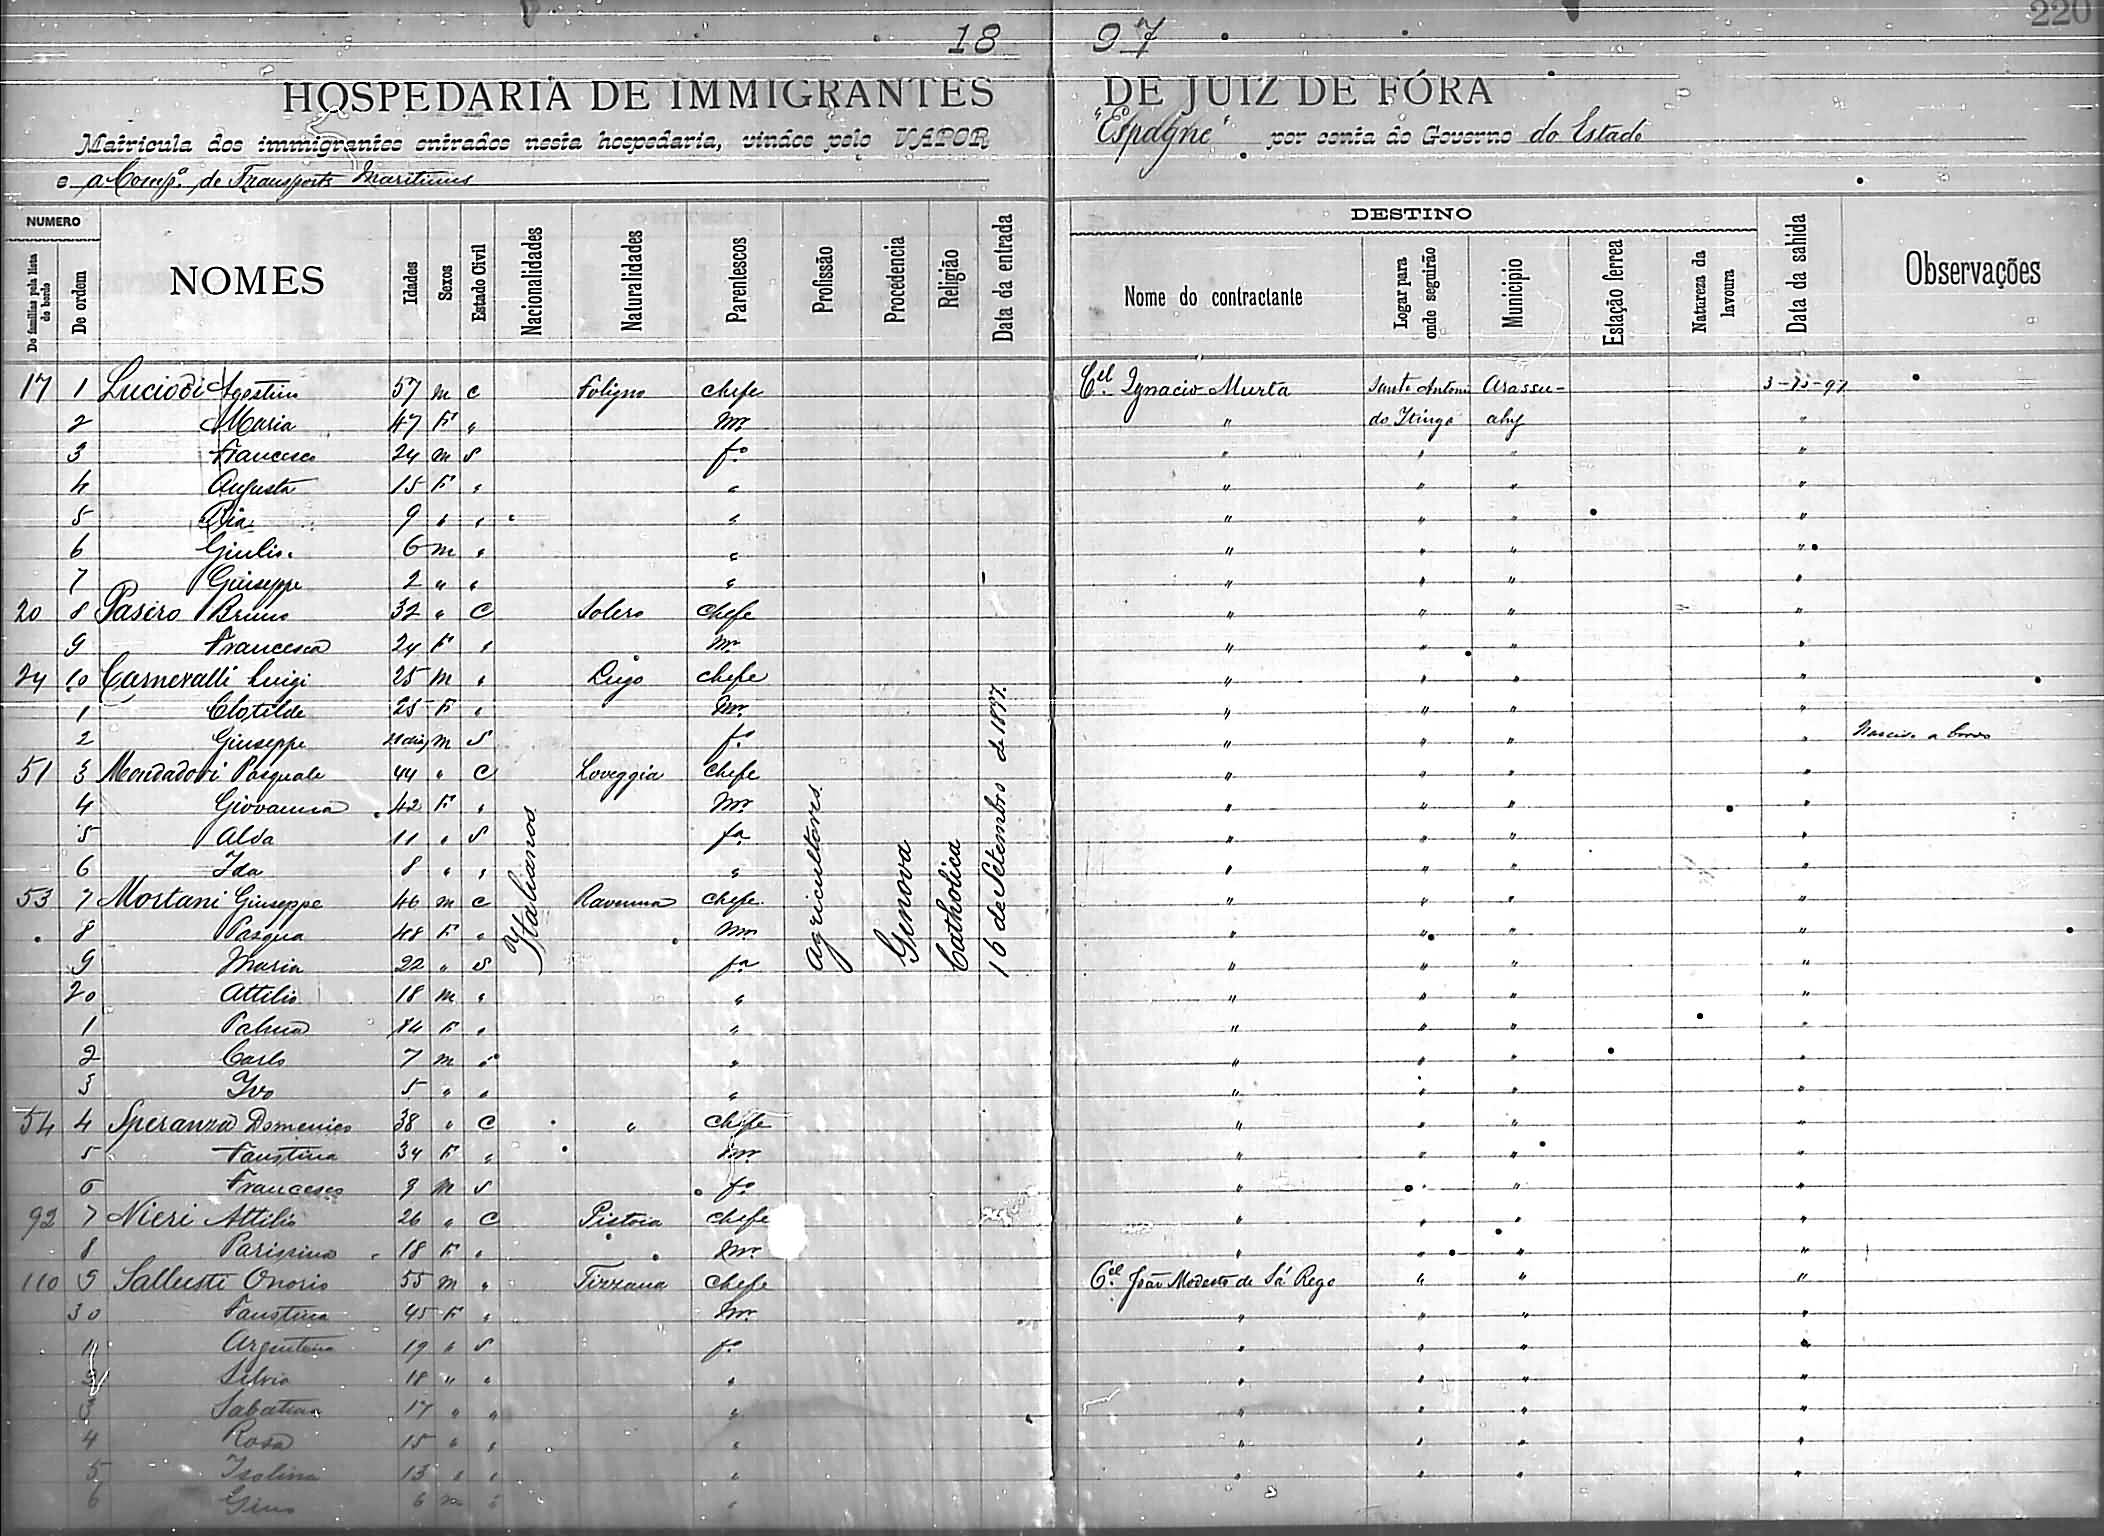 220
18 97
HOSPEDARIA DE IMMIGRANTES DE JUIZ DE FÓRA
Matricula dos immigrantes entrados nesta hospedaria, vindos pelo VAPOR "Espagne" por conta do Governo do Estado
e a Comp.ª de Transports Maritimes
NUMERO
De familias pela lista de bordo
De ordem
NOMES
Idades
Sexos
Estado Civil
Nacionalidades
Naturalidades
Parentescos
Profissão
Procedencia
Religião
Data da entrada
DESTINO
Nome do contractante
Logar para onde seguirão
Municipio
Estação ferrea
Natureza da lavoura
Data da sahida
Observações
17 1 Luciodi Agostino 57 m C Foligno Chefe Cel. Ignacio Murta Santo Antonio Arassu- 3-"-97
2 Maria 47 F " Mr. " do Itinga ahy "
3 Francesco 24 m S fo. " " " "
4 Augusta 15 F " " " " " "
5 Pia 9 " " " " " " "
6 Giulio 6 m " " " " " "
7 Giuseppe 2 " " " " " " "
20 8 Pasero Bruno 32 " C Solero Chefe " " " "
9 Francesca 24 F " Mr " " " "
24 10 Carnevalli Luigi 25 m " Lugo Chefe " " " "
1 Clotilde 25 F " Mr. " " " "
2 Giuseppe dias m S fo. " " " " Nascido a bordo
51 3 Mondadori Pasquale 44 " C Loveggia Chefe " " " "
4 Giovanna 42 F " Mr " " " "
5 Alda 11 " S fa. " " " "
6 Ida 8 " " " " " " "
53 7 Mortani Giuseppe 46 m C Ravenna Chefe. " " " "
8 Pasqua 48 F " Mr. " " " "
9 Maria 22 " S fa " " " "
20 Attilio 18 m " " " " " "
1 Palma 14 F " " " " " "
2 Carlo 7 m " " " " " "
3 Ivo 5 " " " " " " "
54 4 Speranza Domenico 38 " C " Chefe " " " "
5 Faustina 34 F " Mr " " " "
6 Francesco 9 m S fo. " " " "
92 7 Nieri Attilio 26 " C Pistoia Chefe " " " "
8 Parisina 18 F " Mr. " " " "
110 9 Sallusti Onorio 55 m " Tizzana Chefe Cel. João Modesto de Sá Rego " " "
30 Faustina 45 F " Mr. " " " "
1 Argentina 19 " S fa. " " " "
2 Silvia 18 " " " " " " "
3 Sabatina 17 " " " " " " "
4 Rosa 15 " " " " " " "
5 Isolina 13 " " " " " " "
6 Gino 6 m " "
Italianos
Agricultores.
Genova
Catholica
16 de Setembro de 1897.